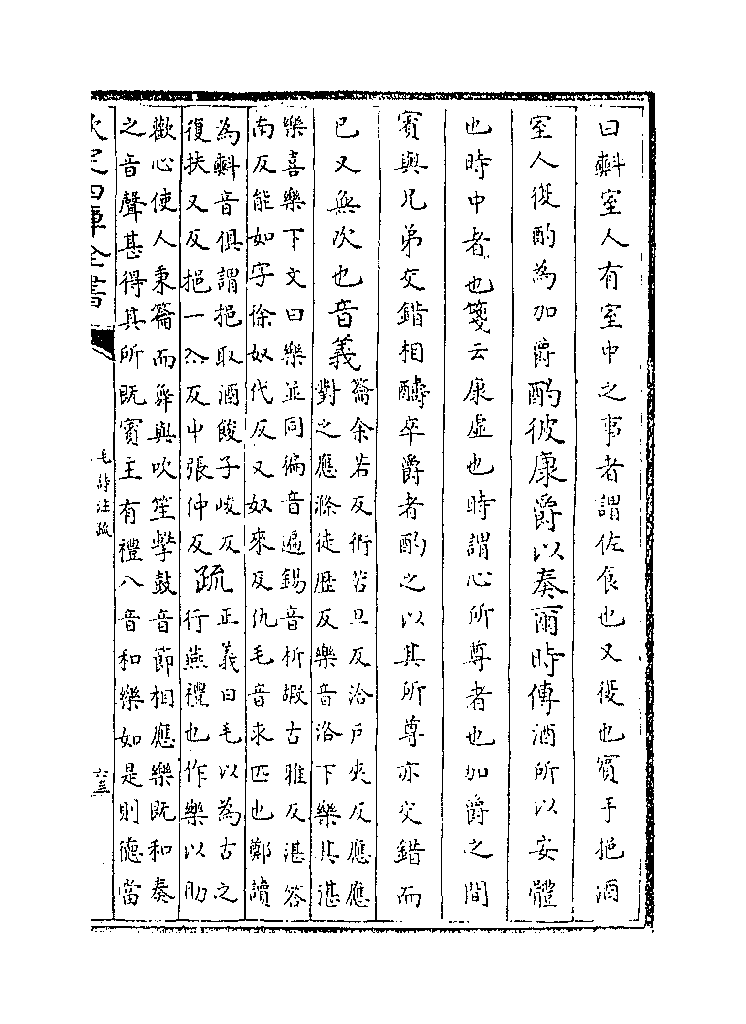 曰㪺室人有室中之事者謂佐食也又復也賓手挹酒
室人復酌為加爵酌彼康爵以奏爾時傳酒所以安體
也時中者也箋云康虛也時謂心所尊者也加爵之間
賓與兄弟交錯相醻卒爵者酌之以其所尊亦交錯而
已又無次也音義
籥余若反衎苦旦反洽户夾反應應
對之應滌徒歷反樂音洛下樂其湛
樂喜樂下文曰樂並同徧音遍錫音析嘏古雅反湛答
南反能如字徐奴代反又奴來反仇毛音求匹也鄭讀
為㪺音俱謂挹取酒餕子峻反
復扶又反挹一入反中張仲反
疏
正義曰毛以為古之
行燕禮也作樂以助
歡心使人秉籥而舞與吹笙擊鼓音節相應樂既和奏
之音聲甚得其所既賓主有禮八音和樂如是則德當
欽定四庫全書
毛詩注疏